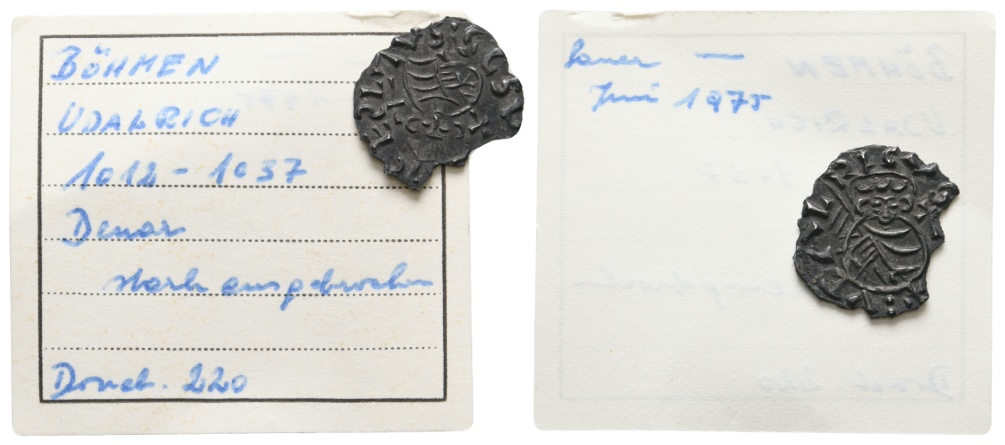 BÖHMEN
UDALRICH
1012 - 1037
Denar
stark ausgebrochen
Doneb. 220
Juni 1975